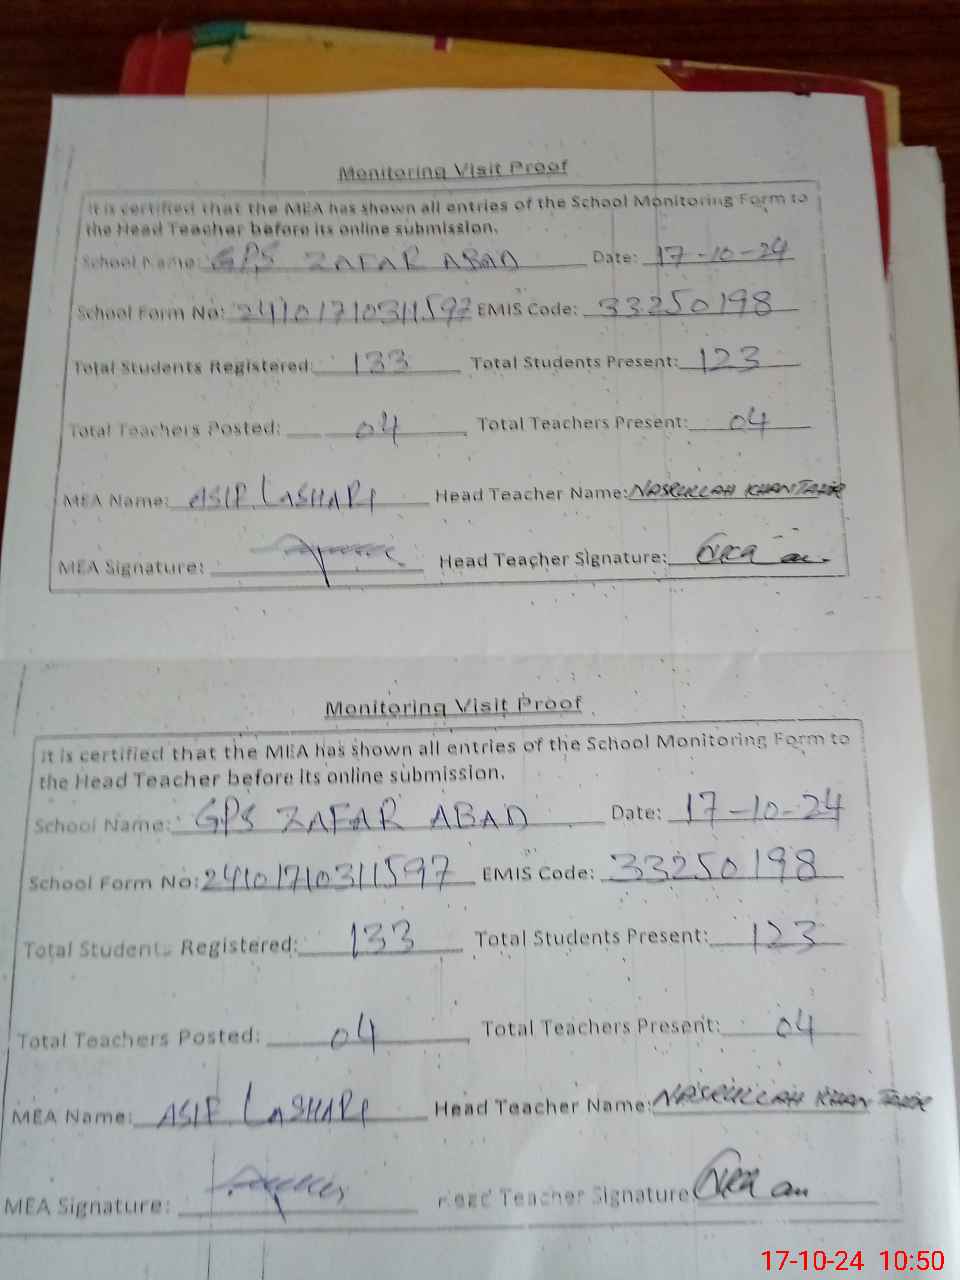 Monitoring Visit Proof
It is certified that the MEA has shown all entries of the School Monitoring Form to
the Head Teacher before its online submission.
School Name: GPS ZAFAR ABAD Date: 17-10-24
School Form No: 24101710311597 EMIS Code: 33250198
Total Students Registered: 133 Total Students Present: 123
Total Teachers Posted: 04 Total Teachers Present: 04
MEA Name: ASIF LASHARI Head Teacher Name: NASRULLAH KHAN TAHIR
MEA Signature: Head Teacher Signature:
Monitoring Visit Proof
It is certified that the MEA has shown all entries of the School Monitoring Form to
the Head Teacher before its online submission.
School Name: GPS ZAFAR ABAD Date: 17-10-24
School Form No: 24101710311597 EMIS Code: 33250198
Total Students Registered: 133 Total Students Present: 123
Total Teachers Posted: 04 Total Teachers Present: 04
MEA Name: ASIF LASHARI Head Teacher Name: NASRULLAH KHAN TAHIR
MEA Signature: Head Teacher Signature:
17-10-24 10:50